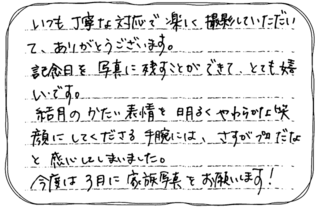 いつも丁寧な対応で楽しく撮影していただい
て、ありがとうございます。
記念日を写真に残すことができて、とても嬉し
いです。
結月のかたい表情を明るくやわらかな笑
顔にしてくださる手腕には、さすがプロだな
と感心してしまいました。
今度は3月に家族写真をお願いします!